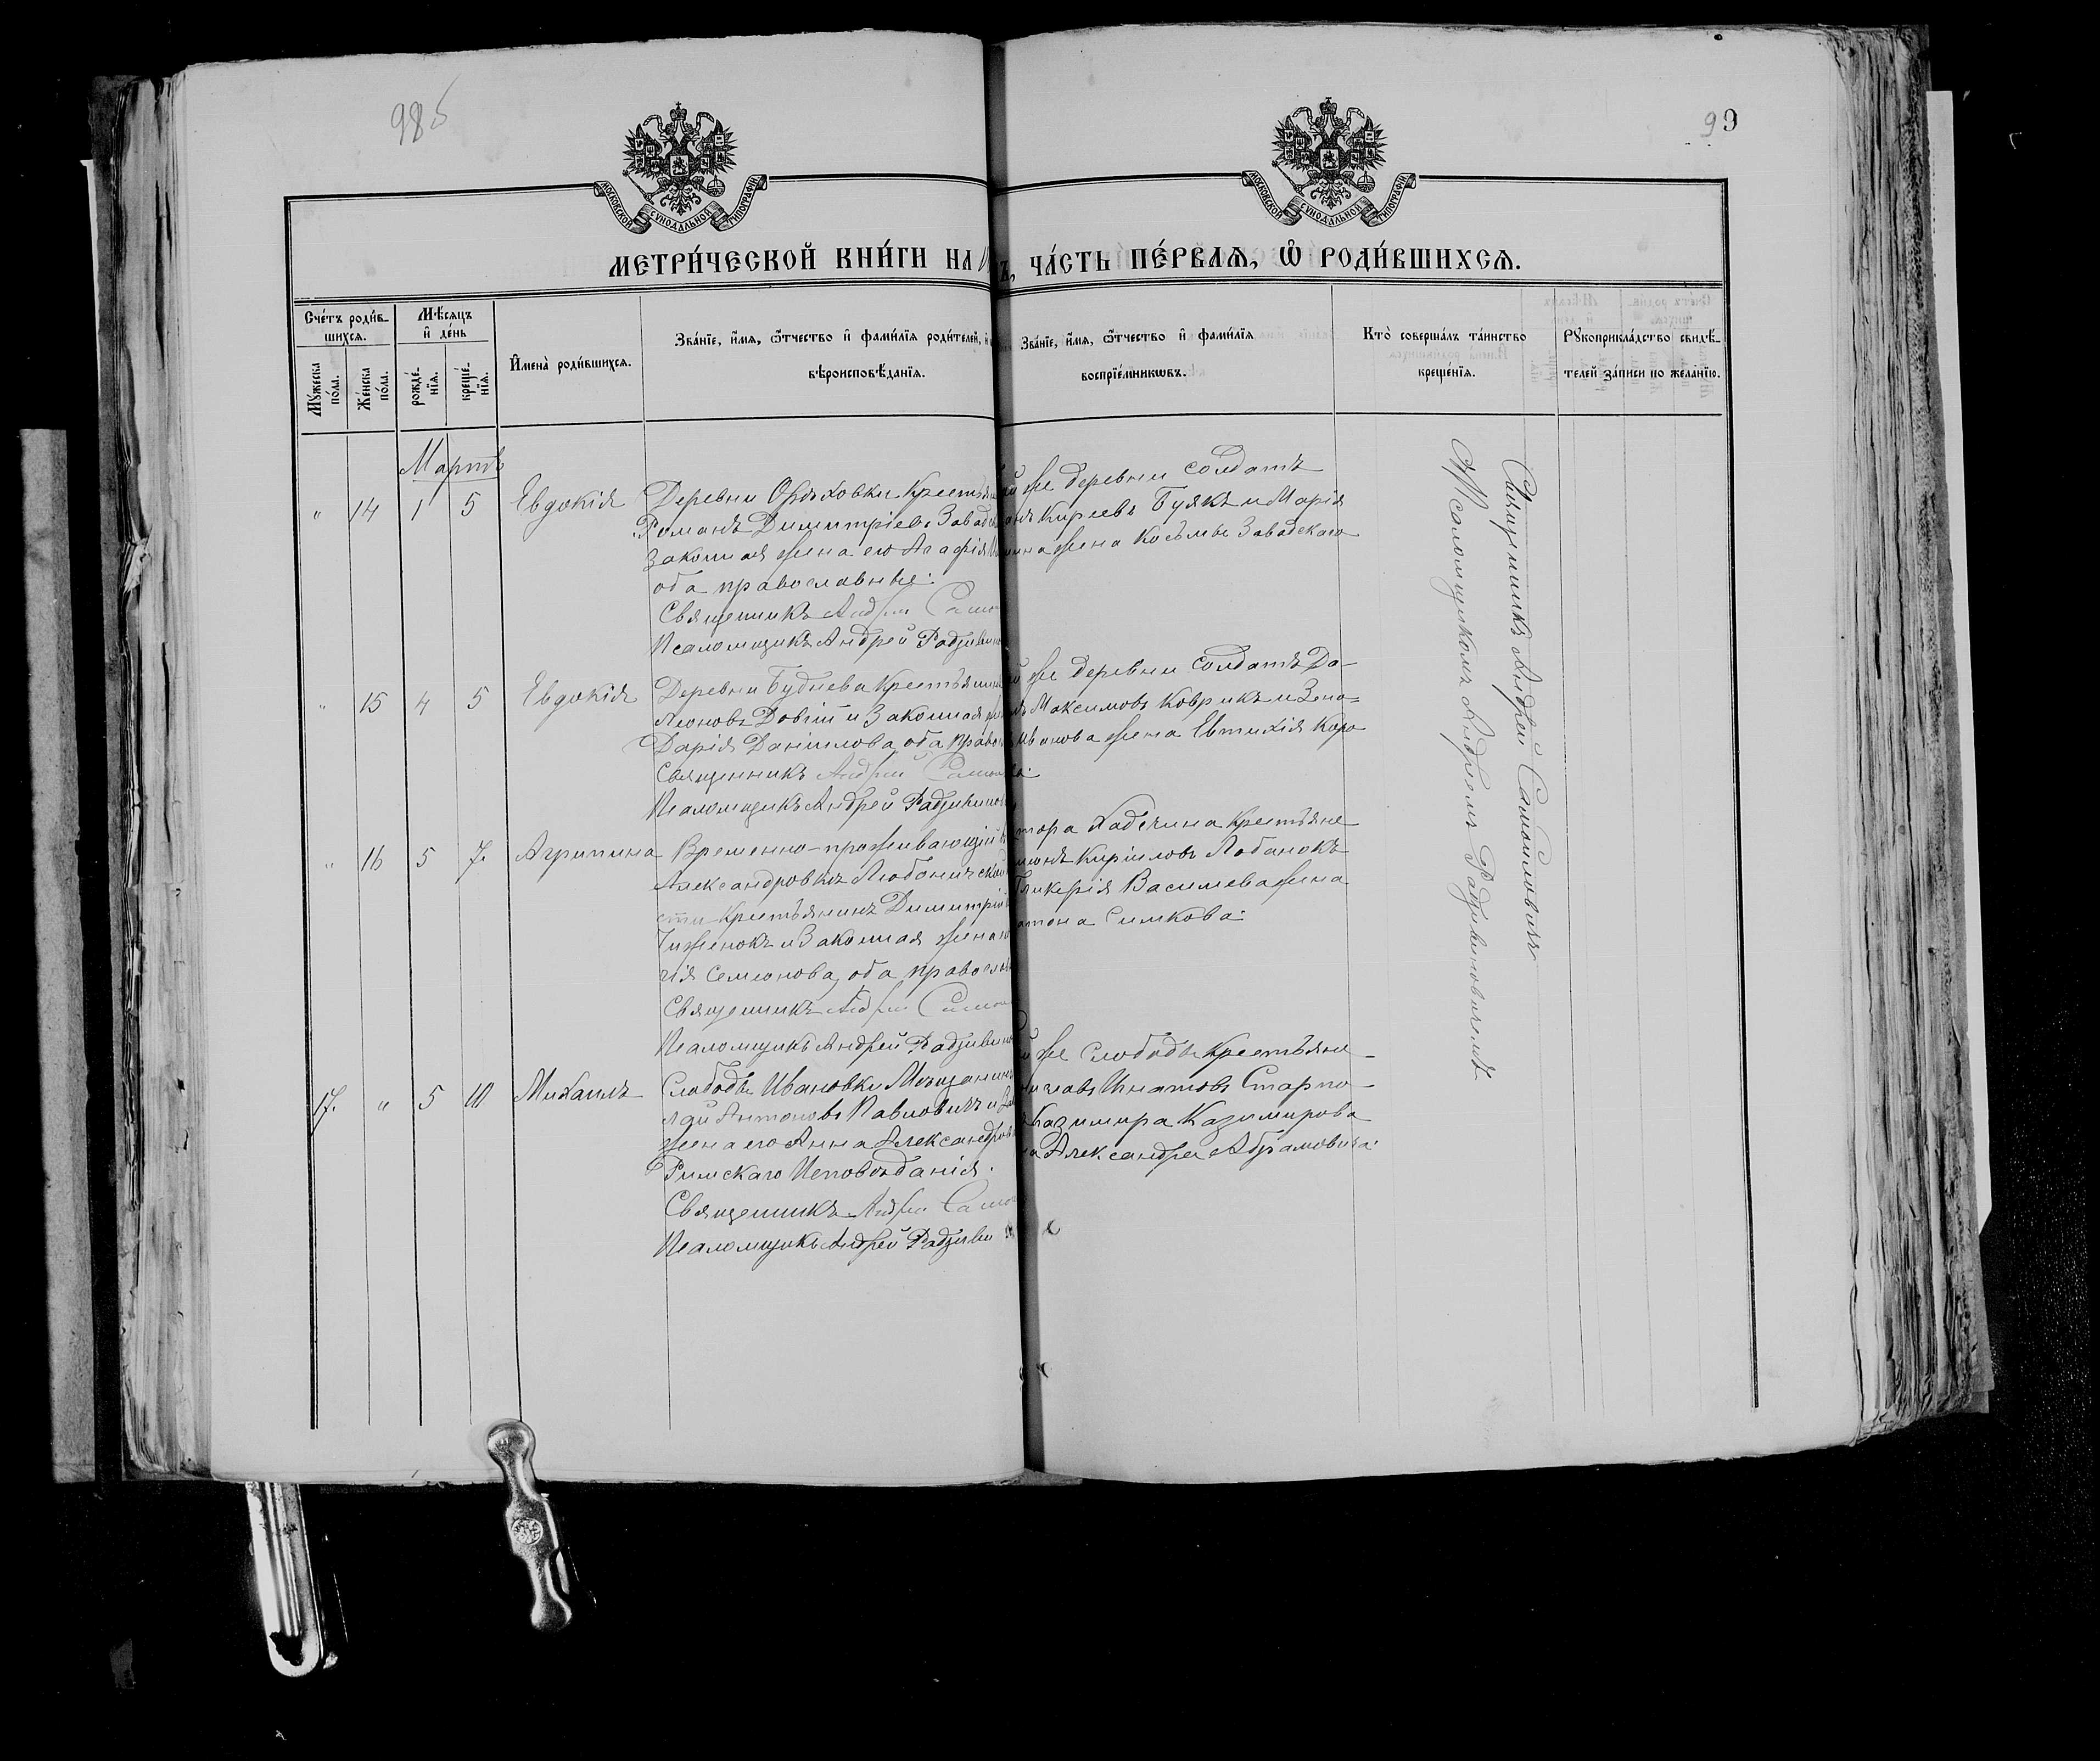 98б
99
МОСКОВСКОЙ СУНОДАЛЬНОЙ ТИПОГРАФІИ
МОСКОВСКОЙ СУНОДАЛЬНОЙ ТИПОГРАФІИ
МЕТРИ́ЧЕСКОЙ КНИ́ГИ НА
Ъ, ЧА́СТЬ ПЕ́РВАѦ, Ѡ҆ РОДИ́ВШИХСѦ.
Сче́тъ роди́в-
шихся.
Мꙋ́жеска по́ла.
Же́нска по́ла.
Мѣ́сяцъ
и҆ де́нь
рожде́-нїя.
креще́-нїя.
И҆мена̀ роди́вшихся.
Зва́нїе, и҆́мя, ѻ҆́тчество и҆ фами́лїя роди́телей, и҆
вѣроисповѣ́данїя.
Зва́нїе, и҆́мя, ѻ҆́тчество и҆ фами́лїя
воспрїе́мникѡвъ.
Кто̀ соверша́лъ та́инство
креще́нїя.
Рꙋкоприкла́дство свидѣ́-
телей за́писи по жела́нїю.
Мартъ
" 14 1 5 Евдокія
Деревни Ореховки Крестьян
Романъ Димитріевъ Завадск
Законная жена его Агафія
оба православные.
Священникъ Андрей Само
Псаломщикъ Андрей Радзивино
же деревни солдатъ
Киреевъ Буякъ и Марія
жена Косьмы Завадскаго
" 15 4 5 Евдокія
Деревни Буднева Крестьянин
Леоновъ Довгій и Законная
Дарія Даніилова, оба право
Священникъ Андрей Само
Псаломщикъ Андрей Радзивинов
же деревни солдатъ Да-
Максимовъ Коврикъ и Зено=
Иванова жена Евтихія Коро
" 16 5 7. Агрипина
Временно-проживающій
Александровкѣ Любоничской
сти Крестьянинъ Димитрій
Чиженокъ и Законная жена
гія Семіонова, оба правосла
Священникъ Андрей Само
Псаломщикъ Андрей Радзивино
Хадечина Крестьяне
Кириловъ Лобанокъ
Гликерія Василева жена
Симкова.
17. " 5 10 Михаилъ
Слободы Ивановки Мещанинъ
Антоновъ Павловичъ и
жена его Анна Александров
Римскаго Исповѣданія.
Священникъ Андрей Само
Псаломщикъ Андрей Радзиви
же слободы Крестьяне
Игнатовъ Старпо-
Казимира Казимирова
Александра Абрамовича.
Священникъ Андрей Самойловичъ
Псаломщикомъ Андреемъ Радзивиновичемъ